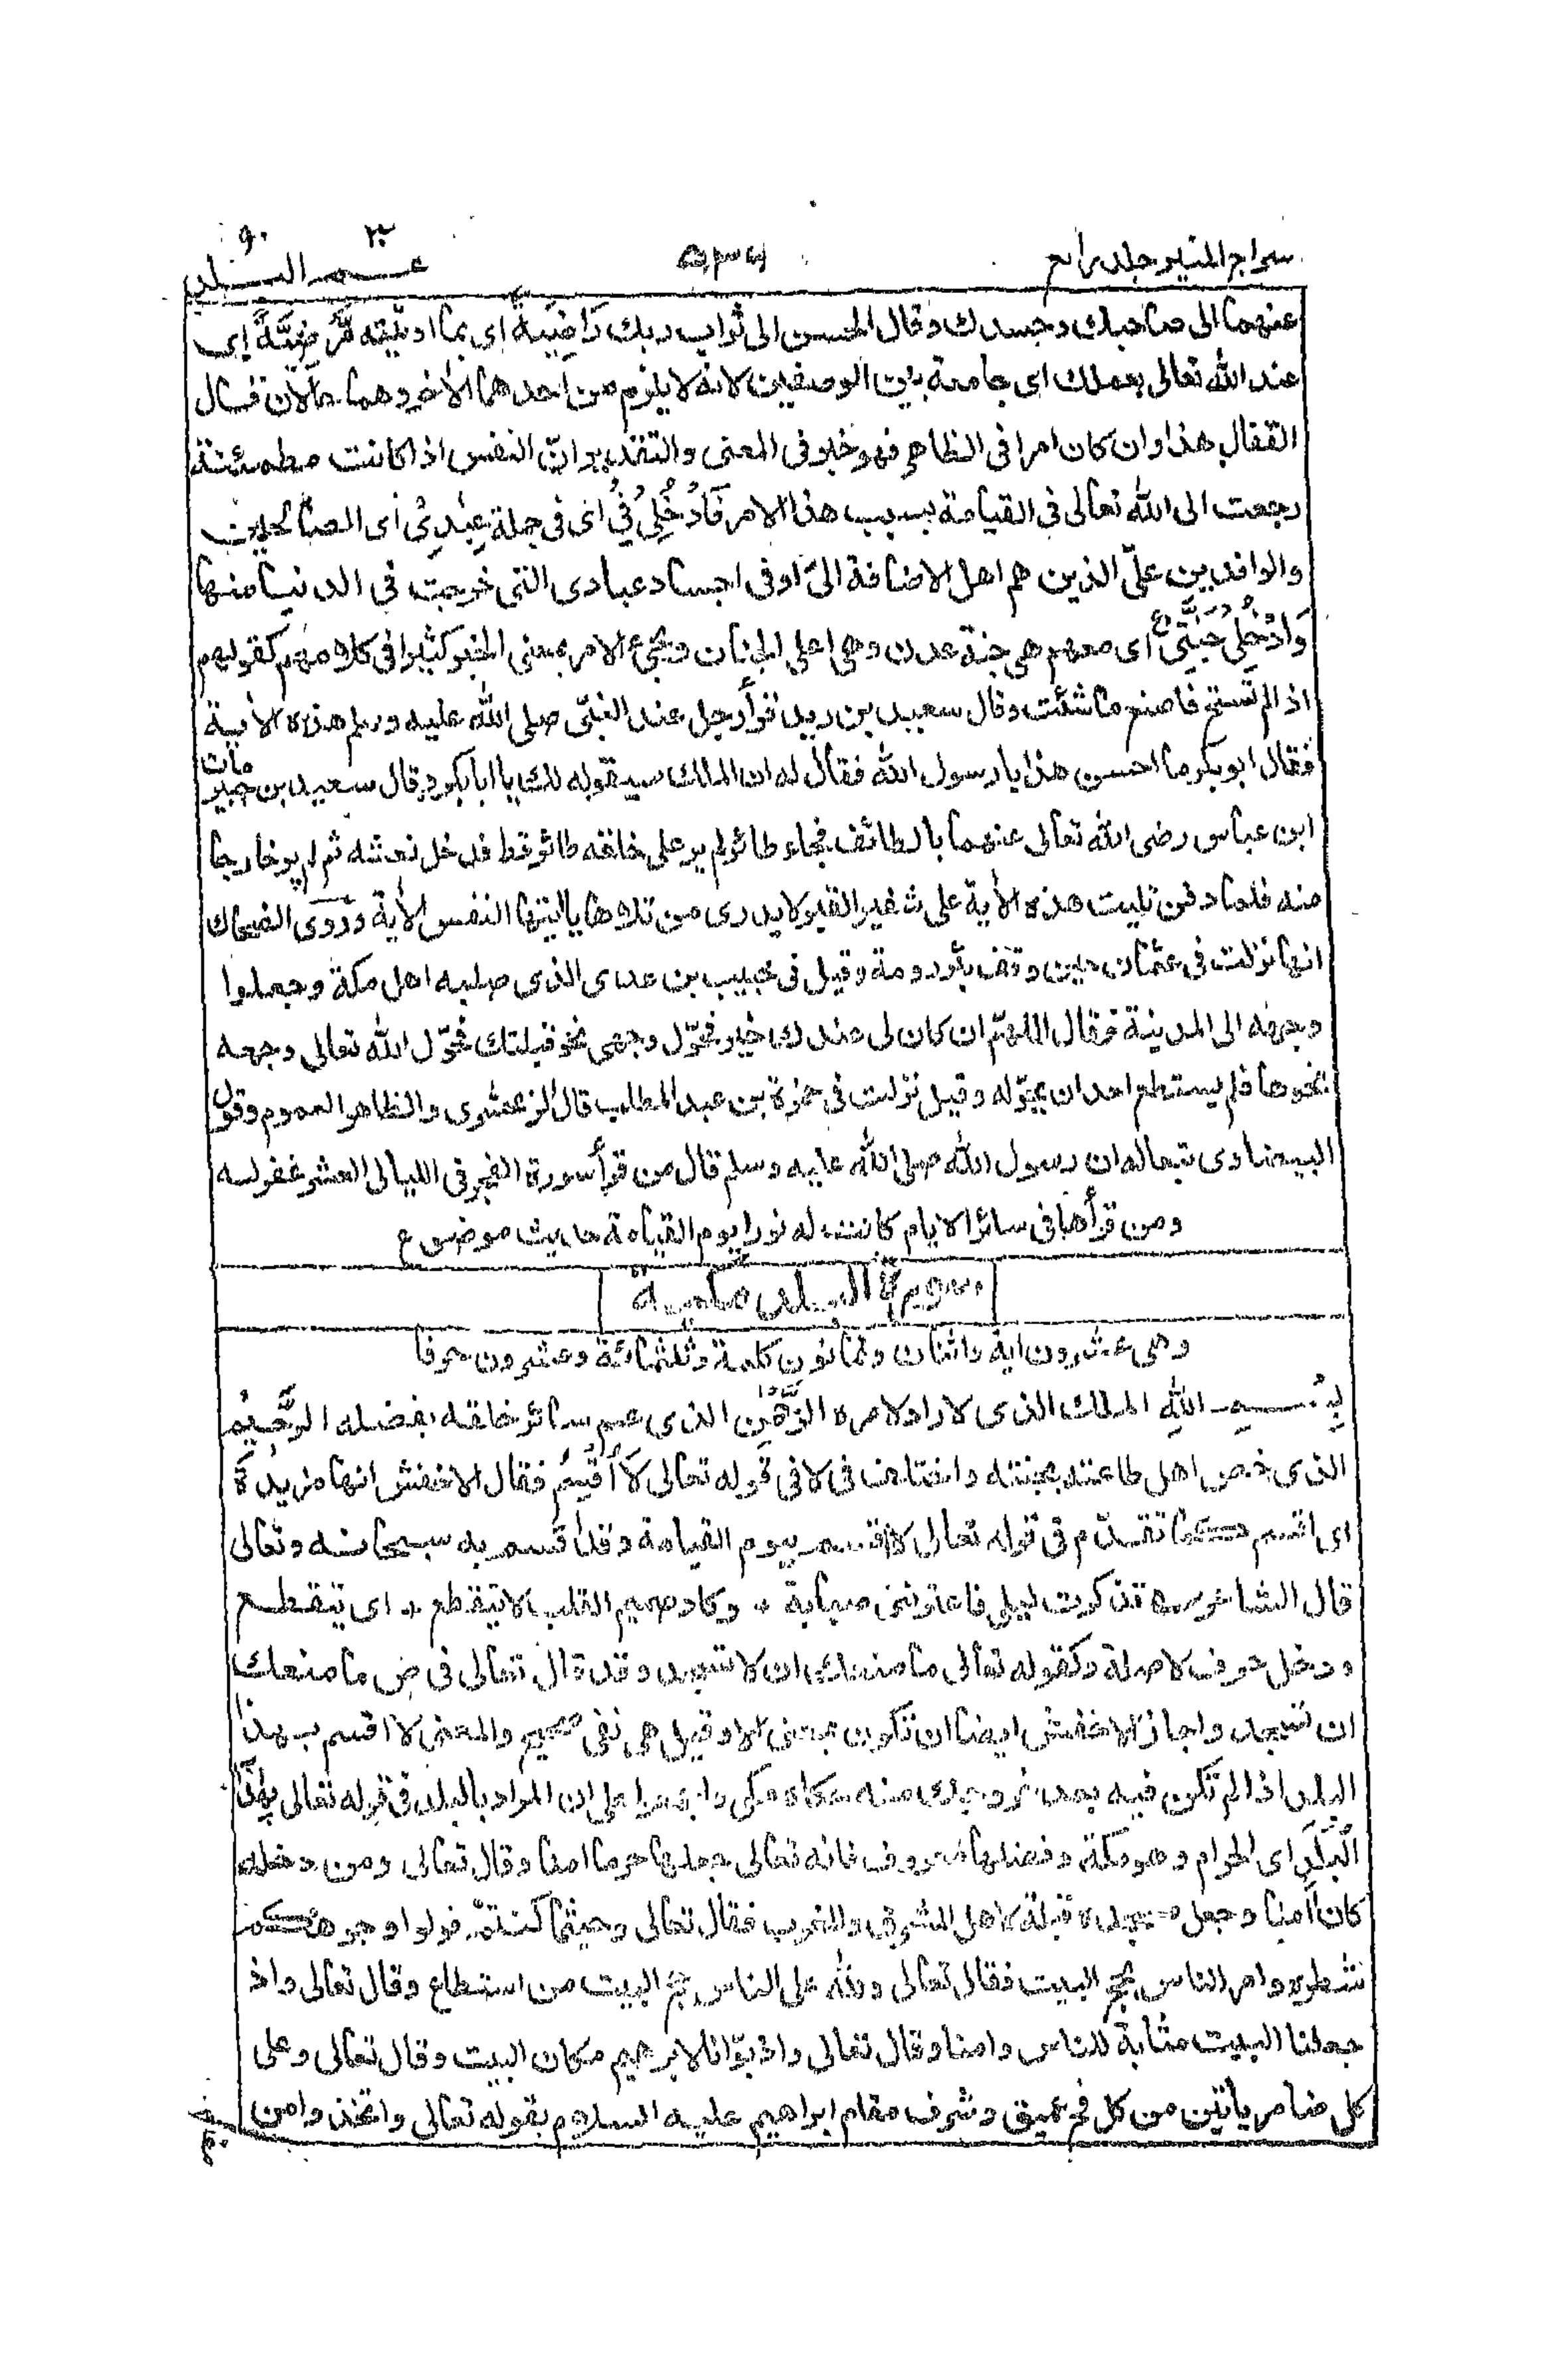 سراج المنير جلد رابع ٥٣٦ عم البلد ٩٠
عنهما الى صاحبك وجسدك وقال الحسن الى ثواب ربك رَاضِيَةً اى بما اوتيته مَّرْضِيَّةً اى
عند الله تعالى بعملك اى جامعة بين الوصفين لانه لا يلزم من احدهما الأخر وهما حالان قال
القفال هذا وان كان امرا فى الظاهر فهو خبر فى المعنى والتقدير انّ النفس اذا كانت مطمئنة
رجعت الى الله تعالى فى القيامة بسبب هذا الامر فَادْخُلِىْ فِىْ اى فى جملة عِبٰدِىْ اى الصالحين
والوافدين علىّ الذين هم اهل الاضافة الىّ اوفى اجساد عبادى التى خرجت فى الدنيا منها
وَادْخُلِىْ جَنَّتِىْ ع اى معهم هى جنة عدن وهى اعلى الجنان ويجئ الامر بمعنى الخبر كثيرا فى كلامهم كقولهم
اذا لم تستح فاصنع ما شئت وقال سعيد بن زيد قرأ رجل عند النبىّ صلى الله عليه وسلم هذه الأية
فقال ابو بكر ما احسن هذا يا رسول الله فقال له ان الملك سيقوله لك يا ابا بكر وقال سعيد بن جبير مات
ابن عباس رضى الله تعالى عنهما بالطائف فجاء طائر لم ير على خلقه طائر قط فدخل نعشه ثم لم ير خارجا
منه فلما دفن تليت هذه الأية على شفير القبر لا يدرى من تلاها يا ايتها النفس الأية وروى الضحاك
انها نزلت فى عثمان حين وقف بئر رومة وقيل فى خبيب بن عدى الذى صلبه اهل مكة وجعلوا
وجهه الى المدينة فقال اللهمّ ان كان لى عندك خير فحوّل وجهى نحو قبلتك فحوّل الله تعالى وجهه
نحوها فلم يستطع احد ان يحوّله وقيل نزلت فى حمزة بن عبد المطلب قال الزمخشرى والظاهر العموم وقول
البيضاوى تبعا له ان رسول الله صلى الله عليه وسلم قال من قرأ سورة الفجر فى الليالى العشر غفر له
ومن قرأها فى سائر الايام كانت له نورا يوم القيامة حديث موضوع
سورة البلد مكية
وهى عشرون اية واثنان وثمانون كلمة وثلثمائة وعشرون حرفا
بِسْمِ اللهِ الملك الذى لا راد لامره الرَّحْمٰنِ الذى عم سائر خلقه بفضله الرَّحِيْمِ
الذى خص اهل طاعته بجنته واختلف فى لا فى قوله تعالى لَآ اُقْسِمُ فقال الاخفش انها مزيدة
اى اقسم كما تقدّم فى قوله تعالى لا اقسم بيوم القيامة وقد اقسم به سبحانه وتعالى
قال الشاعر تذكرت ليلى فاعترتنى صبابة * وكاد صميم القلب لا يتقطع * اى يتقطع
ودخل حرف لا صلة وكقوله تعالى ما منعك ان لا تسجد وقد قال تعالى فى ص ما منعك
ان تسجد واجاز الاخفش ايضا ان تكون بمعنى الا وقيل هى نفى صحيح والمعنى لا اقسم بهذا
البلد اذا لم تكن فيه بعد خروجك منه حكاه مكى واجمعوا على ان المراد بالبلد فى قوله تعالى بِهٰذَا
الْبَلَدِ اى الحرام وهو مكة وفضلها معروف فانه تعالى جعلها حرما امنا وقال تعالى ومن دخله
كان اٰمنا وجعل مسجده قبلة لاهل المشرق والمغرب فقال تعالى وحيثما كنتم فولوا وجوهكم
شطره وامر الناس بحج البيت فقال تعالى ولله على الناس حج البيت من استطاع وقال تعالى واذ
جعلنا البيت مثابة للناس وامنا وقال تعالى واذ بوّانا لابرهيم مكان البيت وقال تعالى وعلى
كل ضامر يأتين من كل فج عميق وشرف مقام ابراهيم عليه السلام بقوله تعالى واتخذوا من